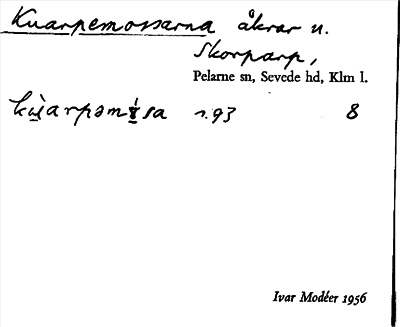 Kvarpemossarna åkrar n.
Skorparp,
Pelarne sn, Sevede hd, Klm l.
s. 93 8
Ivar Modéer 1956